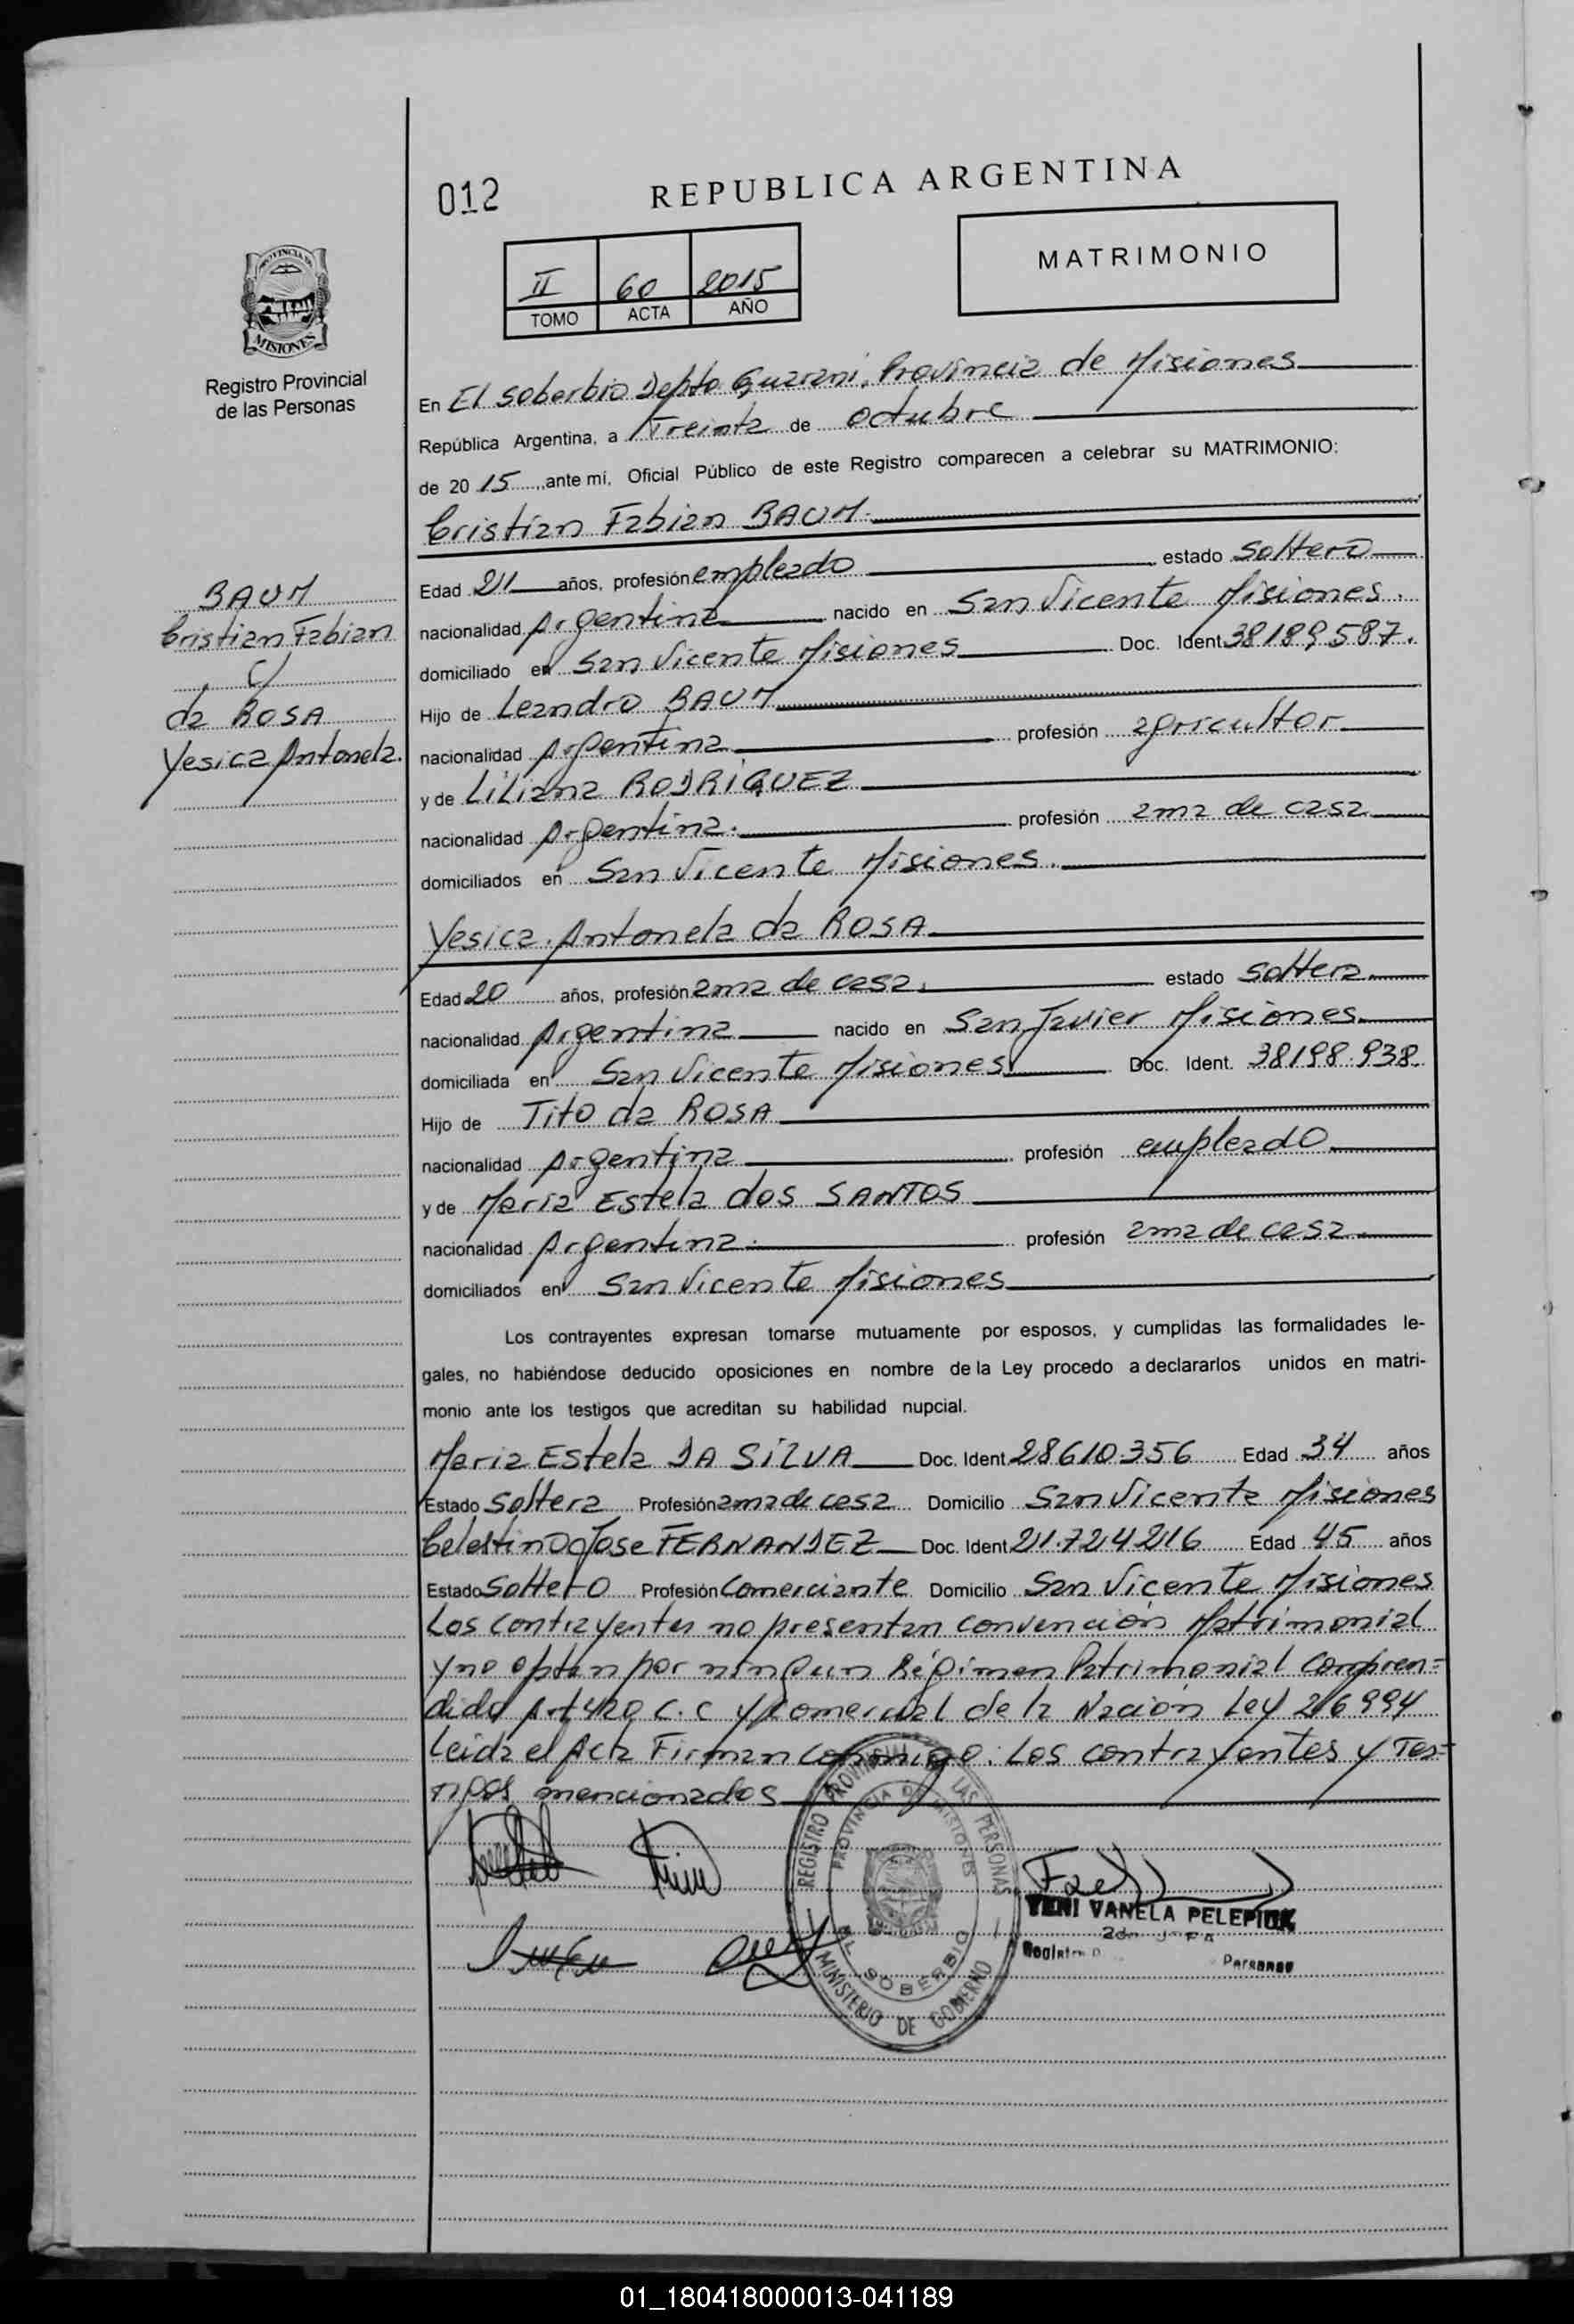 012
REPUBLICA ARGENTINA
II 60 2015
TOMO ACTA AÑO
MATRIMONIO
PROVINCIA DE
MISIONES
Registro Provincial
de las Personas
En El Soberbio Depto Guaraní, Provincia de Misiones
República Argentina, a Treinta de octubre
de 20 15 ante mí, Oficial Público de este Registro comparecen a celebrar su MATRIMONIO:
Cristian Fabian BAUM.
BAUM
Cristian Fabian
c/
da ROSA
Yesica Antonela.
Edad 21 años, profesión empleado estado soltero
nacionalidad Argentina nacido en San Vicente Misiones.
domiciliado en San Vicente Misiones Doc. Ident 38189587.
Hijo de Leandro BAUM
nacionalidad Argentina profesión agricultor
y de Liliana RODRIGUEZ
nacionalidad Argentina. profesión ama de casa
domiciliados en San Vicente Misiones.
Yesica Antonela da ROSA
Edad 20 años, profesión ama de casa. estado soltera
nacionalidad Argentina nacido en San Javier Misiones
domiciliada en San Vicente Misiones Doc. Ident. 38198.938
Hijo de Tito da ROSA
nacionalidad Argentina profesión empleado
y de Maria Estela dos SANTOS
nacionalidad Argentina. profesión ama de casa
domiciliados en San Vicente Misiones
Los contrayentes expresan tomarse mutuamente por esposos, y cumplidas las formalidades le-
gales, no habiéndose deducido oposiciones en nombre de la Ley procedo a declararlos unidos en matri-
monio ante los testigos que acreditan su habilidad nupcial.
Maria Estela DA SILVA Doc. Ident 28610.356 Edad 34 años
Estado Soltera Profesión ama de casa Domicilio San Vicente Misiones
Celestino Jose FERNANDEZ Doc. Ident 21.724216 Edad 45 años
Estado Soltero Profesión Comerciante Domicilio San Vicente Misiones
Los contrayentes no presentan convención Matrimonial
y no optan por ningun Régimen Patrimonial compren=
dido Art 420 C.C y Comercial de la Nación Ley 26994
Leida el Acta Firman conmigo: Los contrayentes y Tes=
tigos mencionados
REGISTRO PROVINCIAL LAS PERSONAS
PROVINCIA DE MISIONES
EL SOBERBIO
MINISTERIO DE GOBIERNO
YENI VANELA
01_180418000013-041189